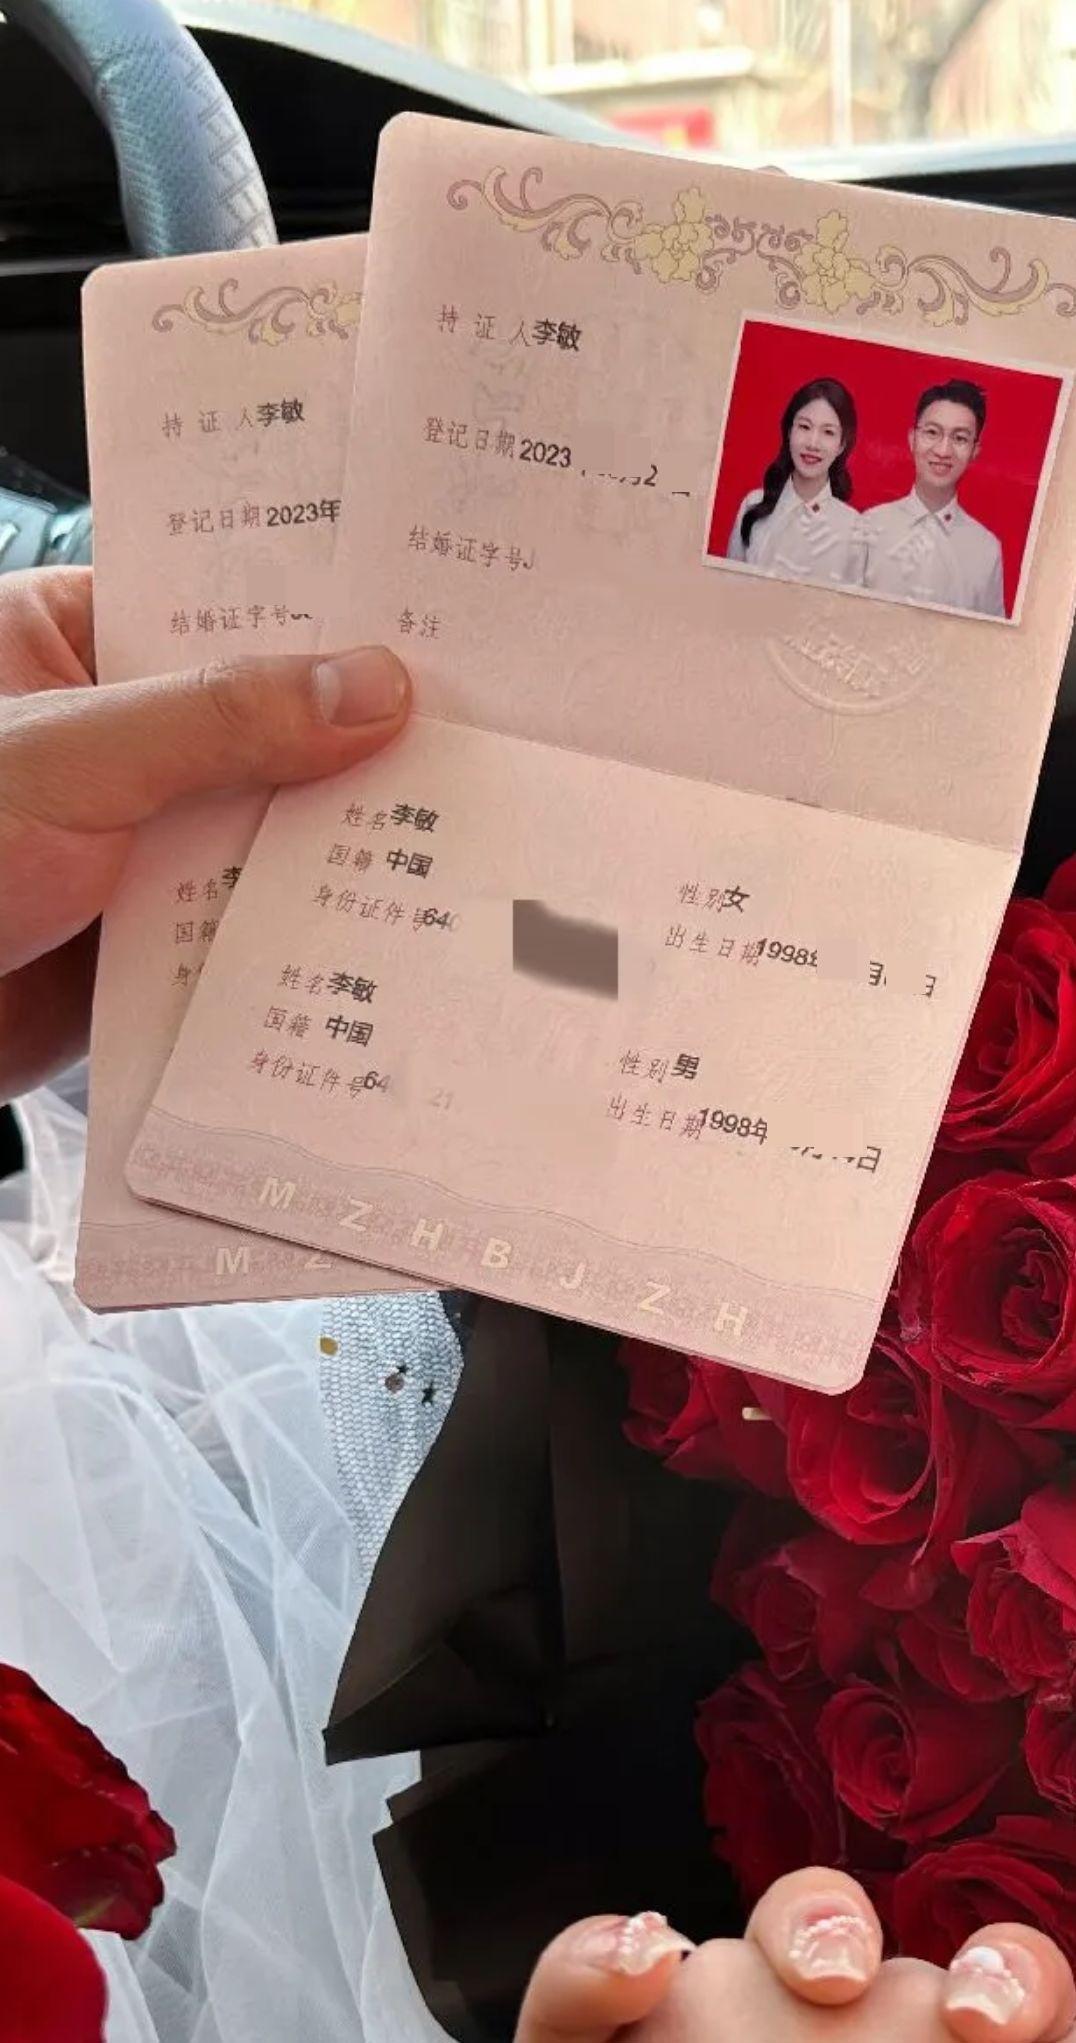 持证人李敏
登记日期2023年
结婚证字号
姓名李
国籍
身
M Z
持证人李敏
登记日期2023
结婚证字号J
备注
姓名李敏
国籍 中国
身份证件号640
性别女
出生日期1998年 月 日
姓名李敏
国籍 中国
身份证件号64
性别男
出生日期1998年 日
M Z H B J Z H